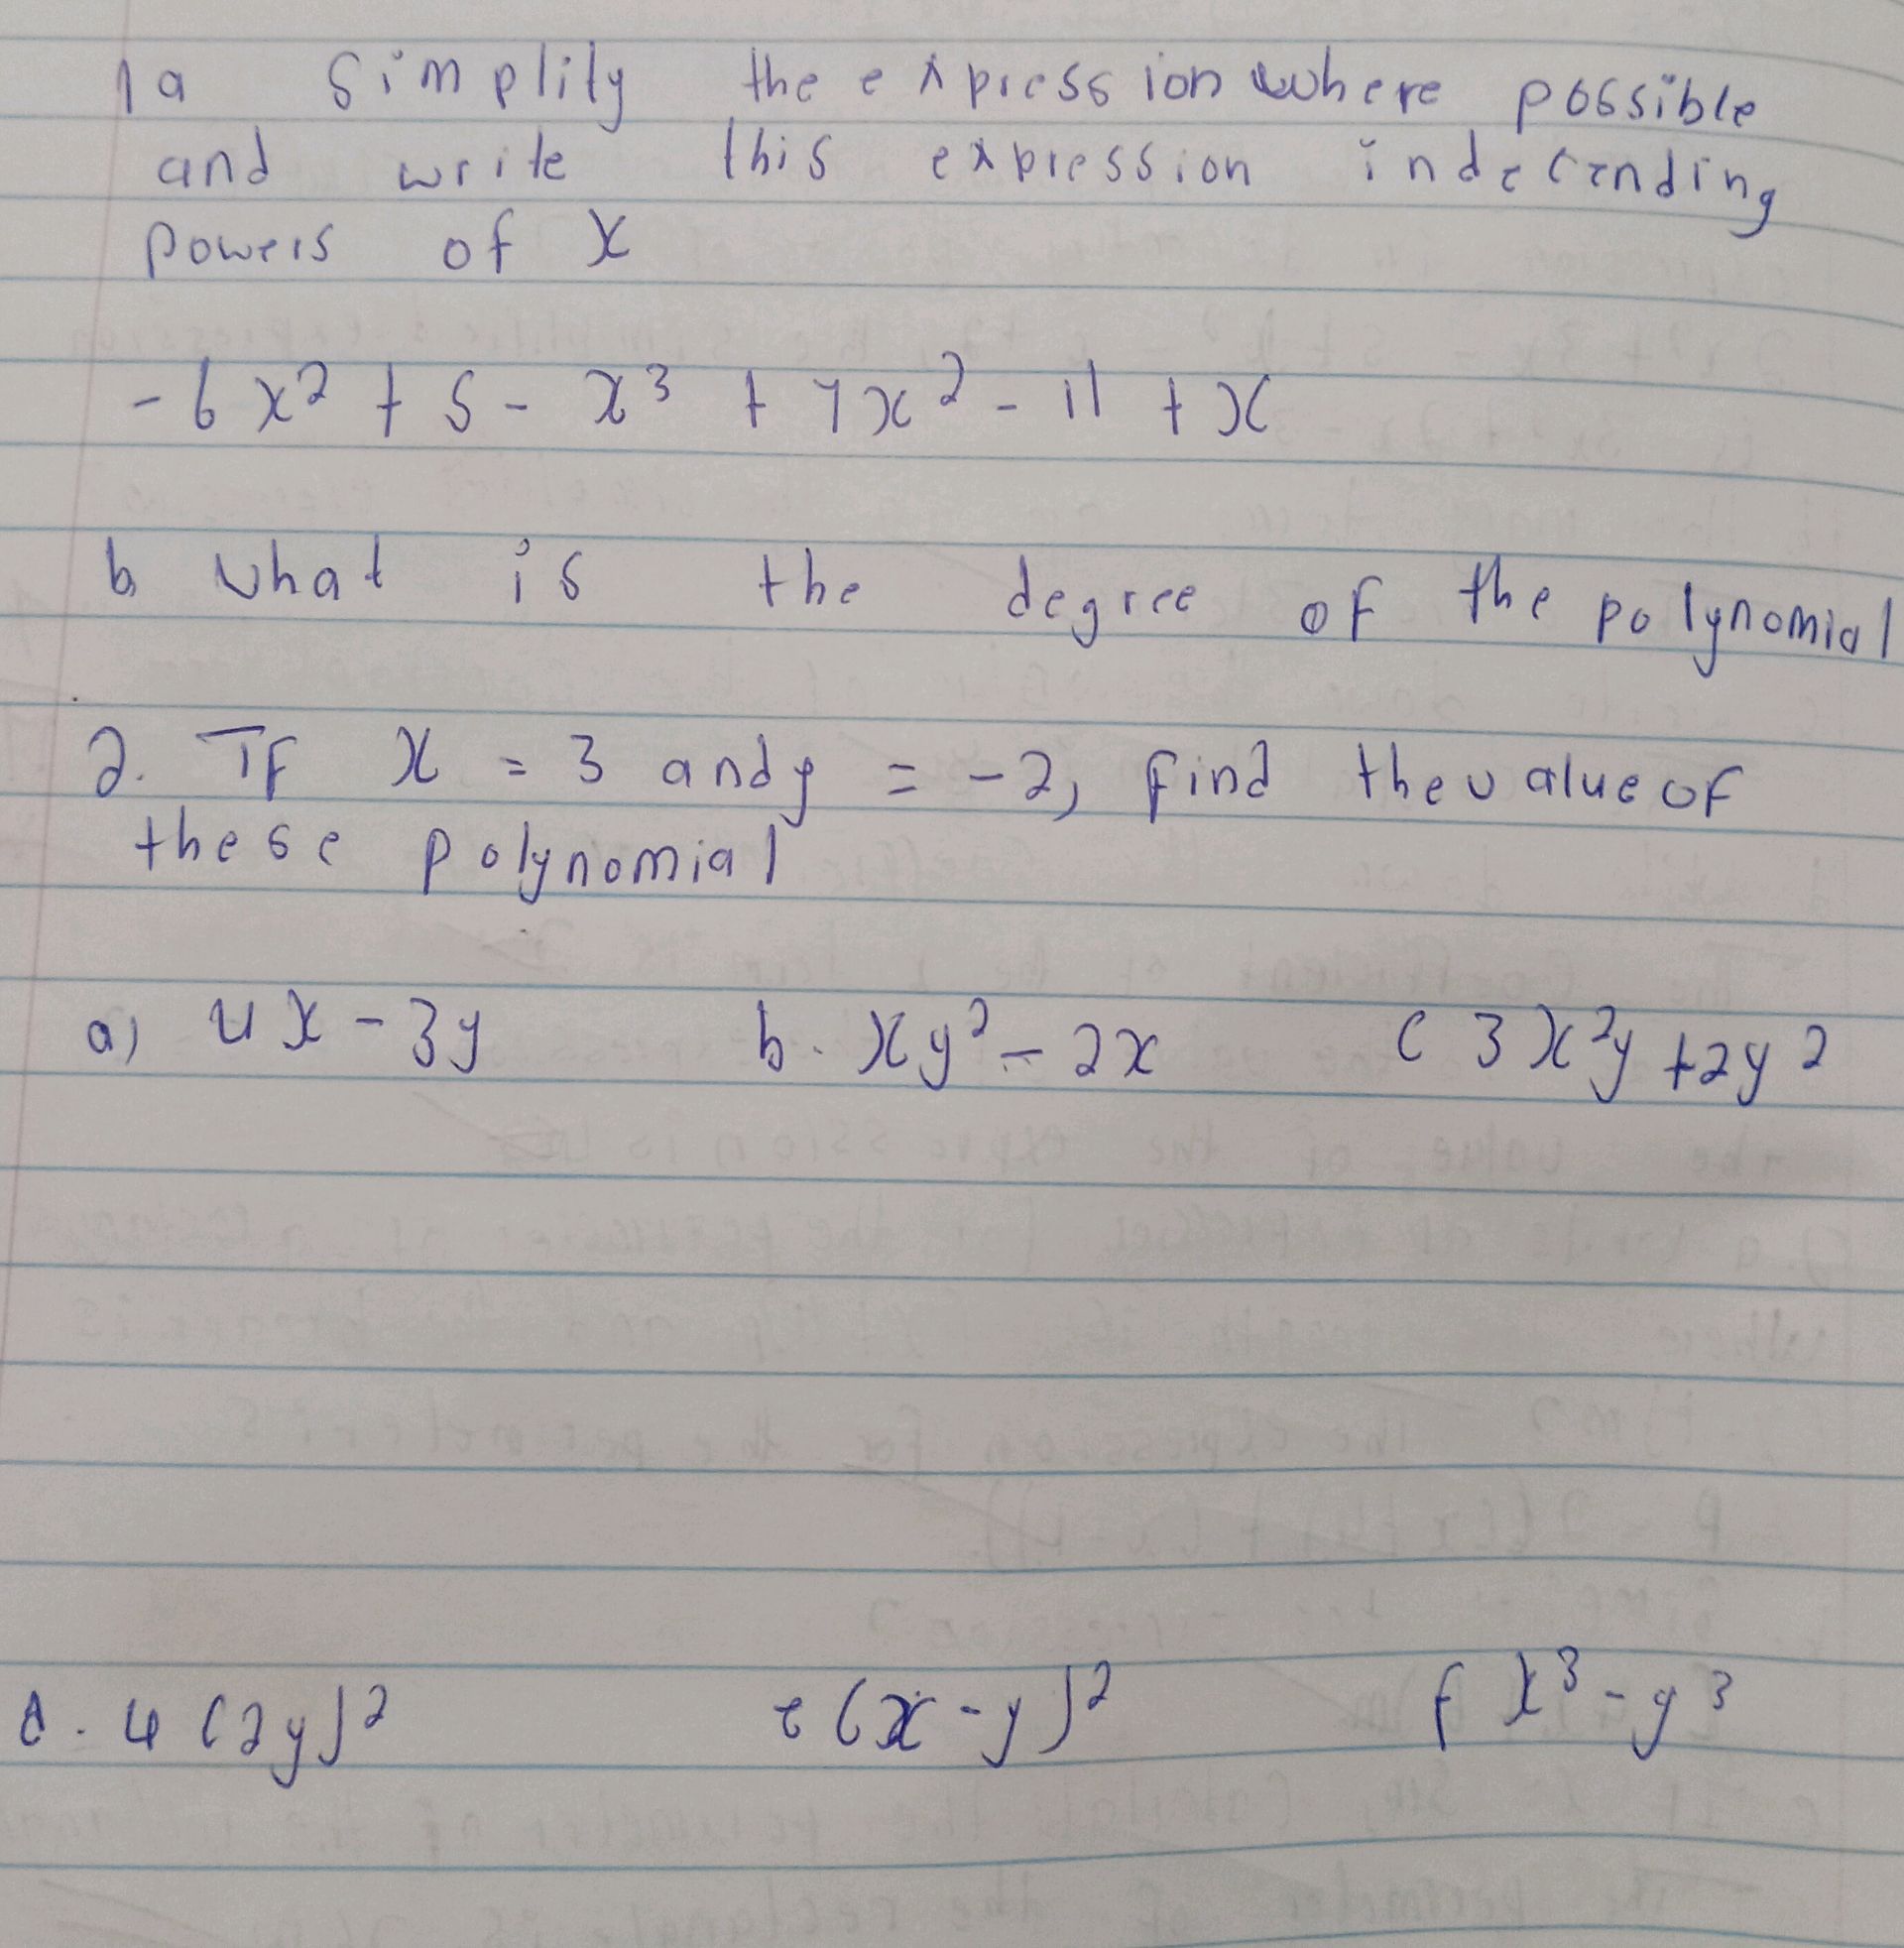 1a simplify the expression where possible
and write this expression indecending
powers of x
-6x² + 5 - x³ + 7x² - 11 + x
b what is the degree of the polynomial
2. If x = 3 and y = -2, find the value of
these polynomial
a) 4x - 3y b. xy² - 2x c 3x²y + 2y²
d. 4(2y)² e (x - y)² f x³ - y³